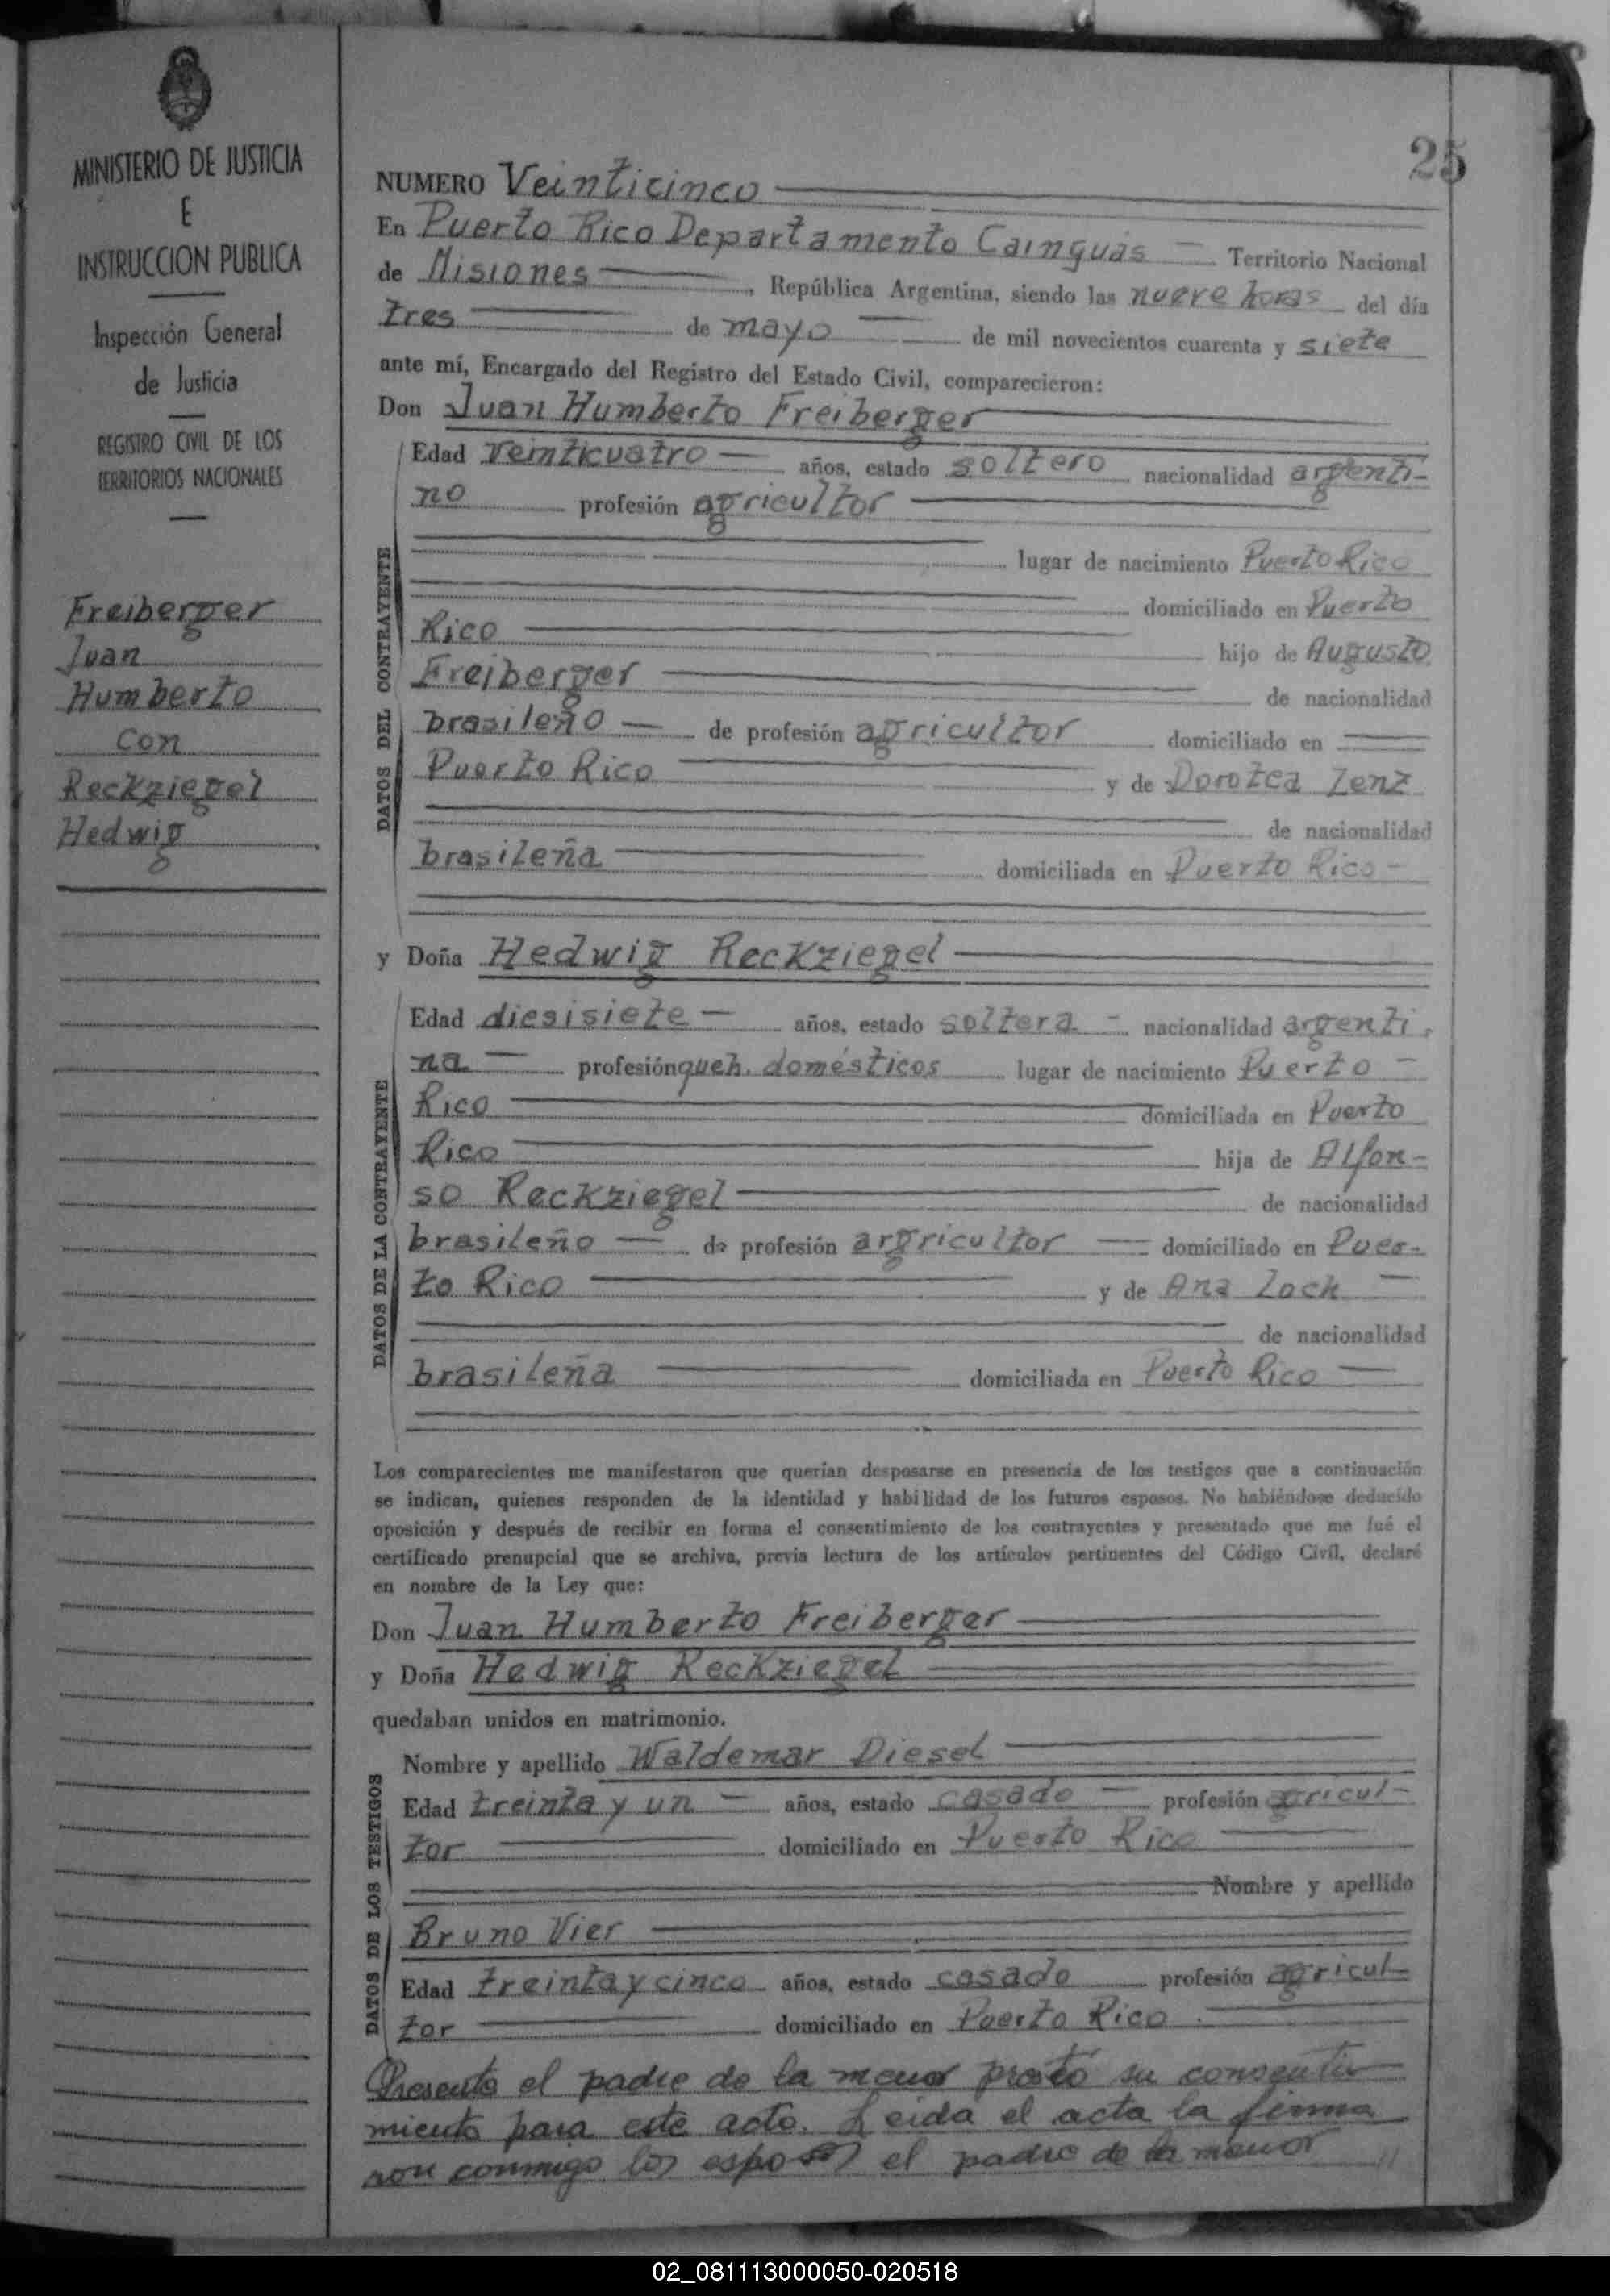 MINISTERIO DE JUSTICIA
E
INSTRUCCION PUBLICA
Inspección General
de Justicia
REGISTRO CIVIL DE LOS
TERRITORIOS NACIONALES
Freiberger
Juan
Humberto
con
Reckziegel
Hedwig
25
NUMERO Veinticinco
En Puerto Rico Departamento Cainguás Territorio Nacional
de Misiones, República Argentina, siendo las nueve horas del día
tres de mayo de mil novecientos cuarenta y siete
ante mí, Encargado del Registro del Estado Civil, comparecieron:
Don Juan Humberto Freiberger
DATOS DEL CONTRAYENTE
Edad veinticuatro años, estado soltero nacionalidad argenti-
no profesión agricultor
lugar de nacimiento Puerto Rico
domiciliado en Puerto
Rico hijo de Augusto
Freiberger de nacionalidad
brasileño de profesión agricultor domiciliado en
Puerto Rico y de Dorotea Lenz
de nacionalidad
brasileña domiciliada en Puerto Rico
y Doña Hedwig Reckziegel
DATOS DE LA CONTRAYENTE
Edad diesisiete años, estado soltera nacionalidad argenti
na profesión queh. domésticos lugar de nacimiento Puerto
Rico domiciliada en Puerto
Rico hija de Alfon-
so Reckziegel de nacionalidad
brasileño de profesión argricultor domiciliado en Puer-
to Rico y de Ana Loch
de nacionalidad
brasileña domiciliada en Puerto Rico
Los comparecientes me manifestaron que querían desposarse en presencia de los testigos que a continuación
se indican, quienes responden de la identidad y habilidad de los futuros esposos. No habiéndose deducido
oposición y después de recibir en forma el consentimiento de los contrayentes y presentado que me fué el
certificado prenupcial que se archiva, previa lectura de los artículos pertinentes del Código Civil, declaré
en nombre de la Ley que:
Don Juan Humberto Freiberger
y Doña Hedwig Reckziegel
quedaban unidos en matrimonio.
DATOS DE LOS TESTIGOS
Nombre y apellido Waldemar Diesel
Edad treinta y un años, estado casado profesión agricul-
tor domiciliado en Puerto Rico
Nombre y apellido
Bruno Vier
Edad treinta y cinco años, estado casado profesión agricul-
tor domiciliado en Puerto Rico
Presente el padre de la menor prestó su consenti-
miento para este acto. Leida el acta la firma
ron conmigo los esposos el padre de la menor //
02_081113000050-020518